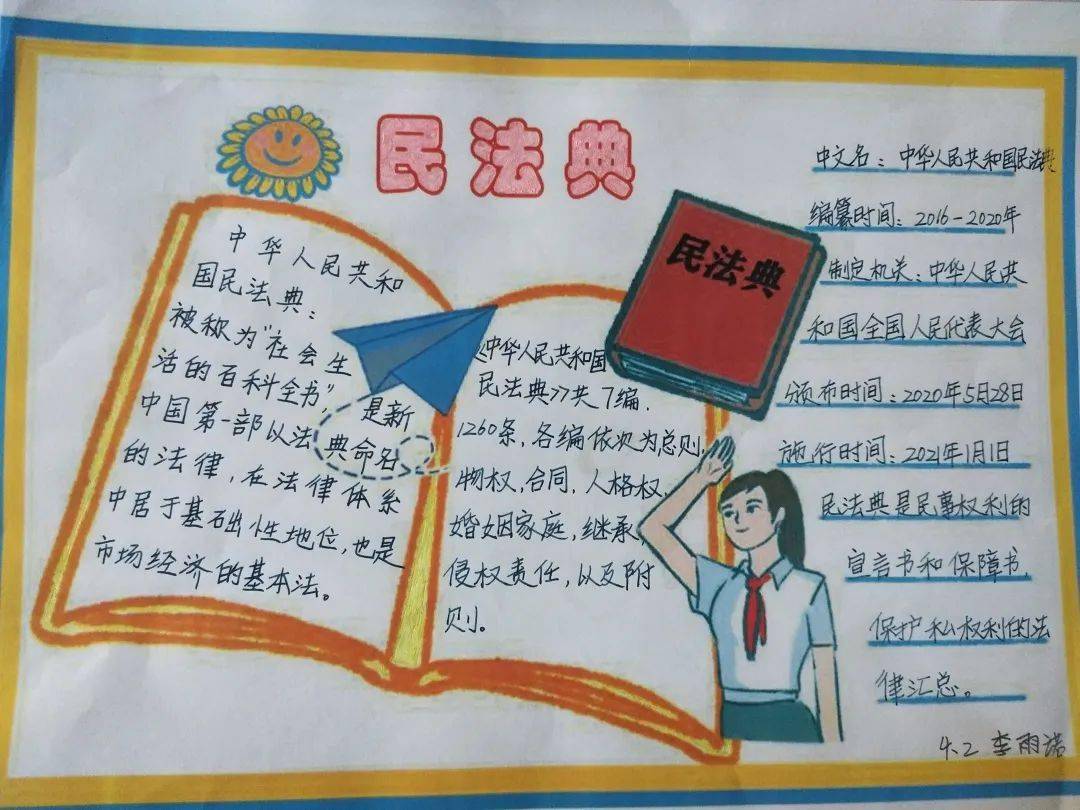 民法典
中华人民共和
国民法典：
被称为"社会生
活的百科全书"，
是新
中国第一部以法典命名
的法律，在法律体系
中居于基础性地位，也是
市场经济的基本法。
《中华人民共和国
民法典》共7编、
1260条，各编依次为总则、
物权，合同，人格权，
婚姻家庭，继承，
侵权责任，以及附
则。
民法典
中文名：中华人民共和国民法典
编纂时间：2016-2020年
制定机关：中华人民共
和国全国人民代表大会
颁布时间：2020年5月28日
施行时间：2021年1月1日
民法典是民事权利的
宣言书和保障书，
保护私权利的法
律汇总。
4.2 李雨诺